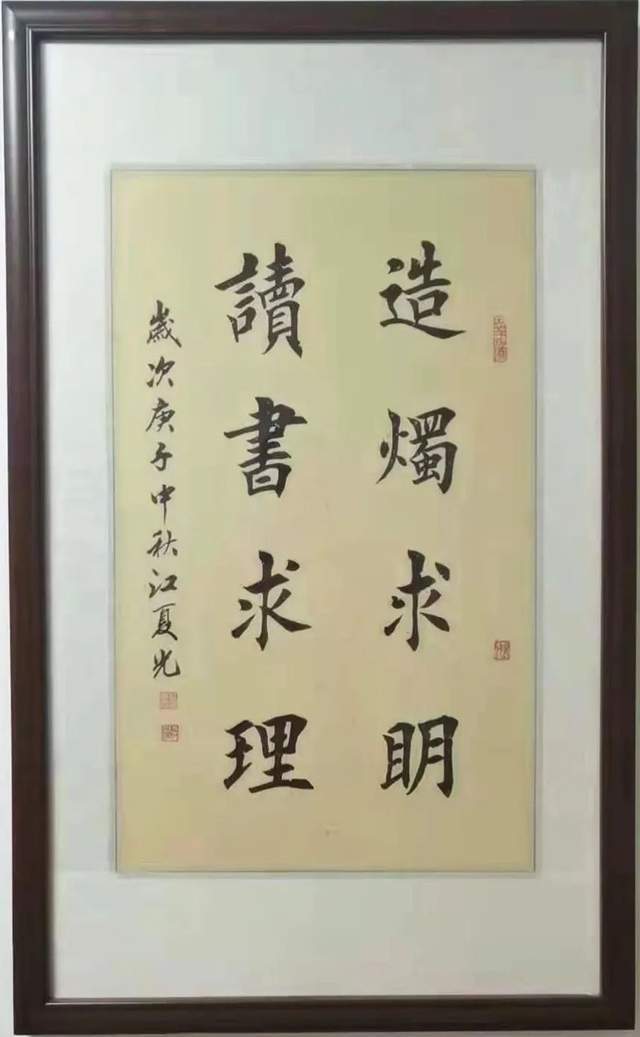 造燭求明
讀書求理
歲次庚子中秋江夏光